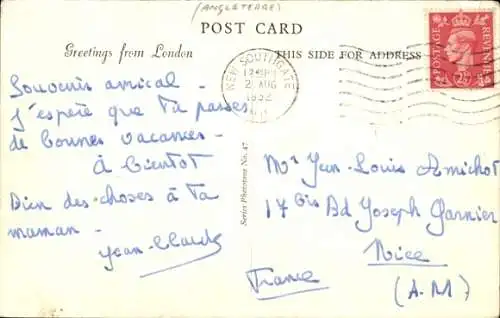 (ANGLETERRE)
POST CARD
Greetings from London
THIS SIDE FOR ADDRESS
NEW SOUTHGATE
2 AUG
1952
N.11
POSTAGE
REVENUE
2½D
Souvenir amical -
J'espère que tu passes
de bonnes vacances -
à bientôt
Bien des choses à ta
maman -
Jean-Claude
Series Phototone No. 47
Mr Jean-Louis Amichot
17 bis Bd Joseph Garnier
Nice
France
(A.M)